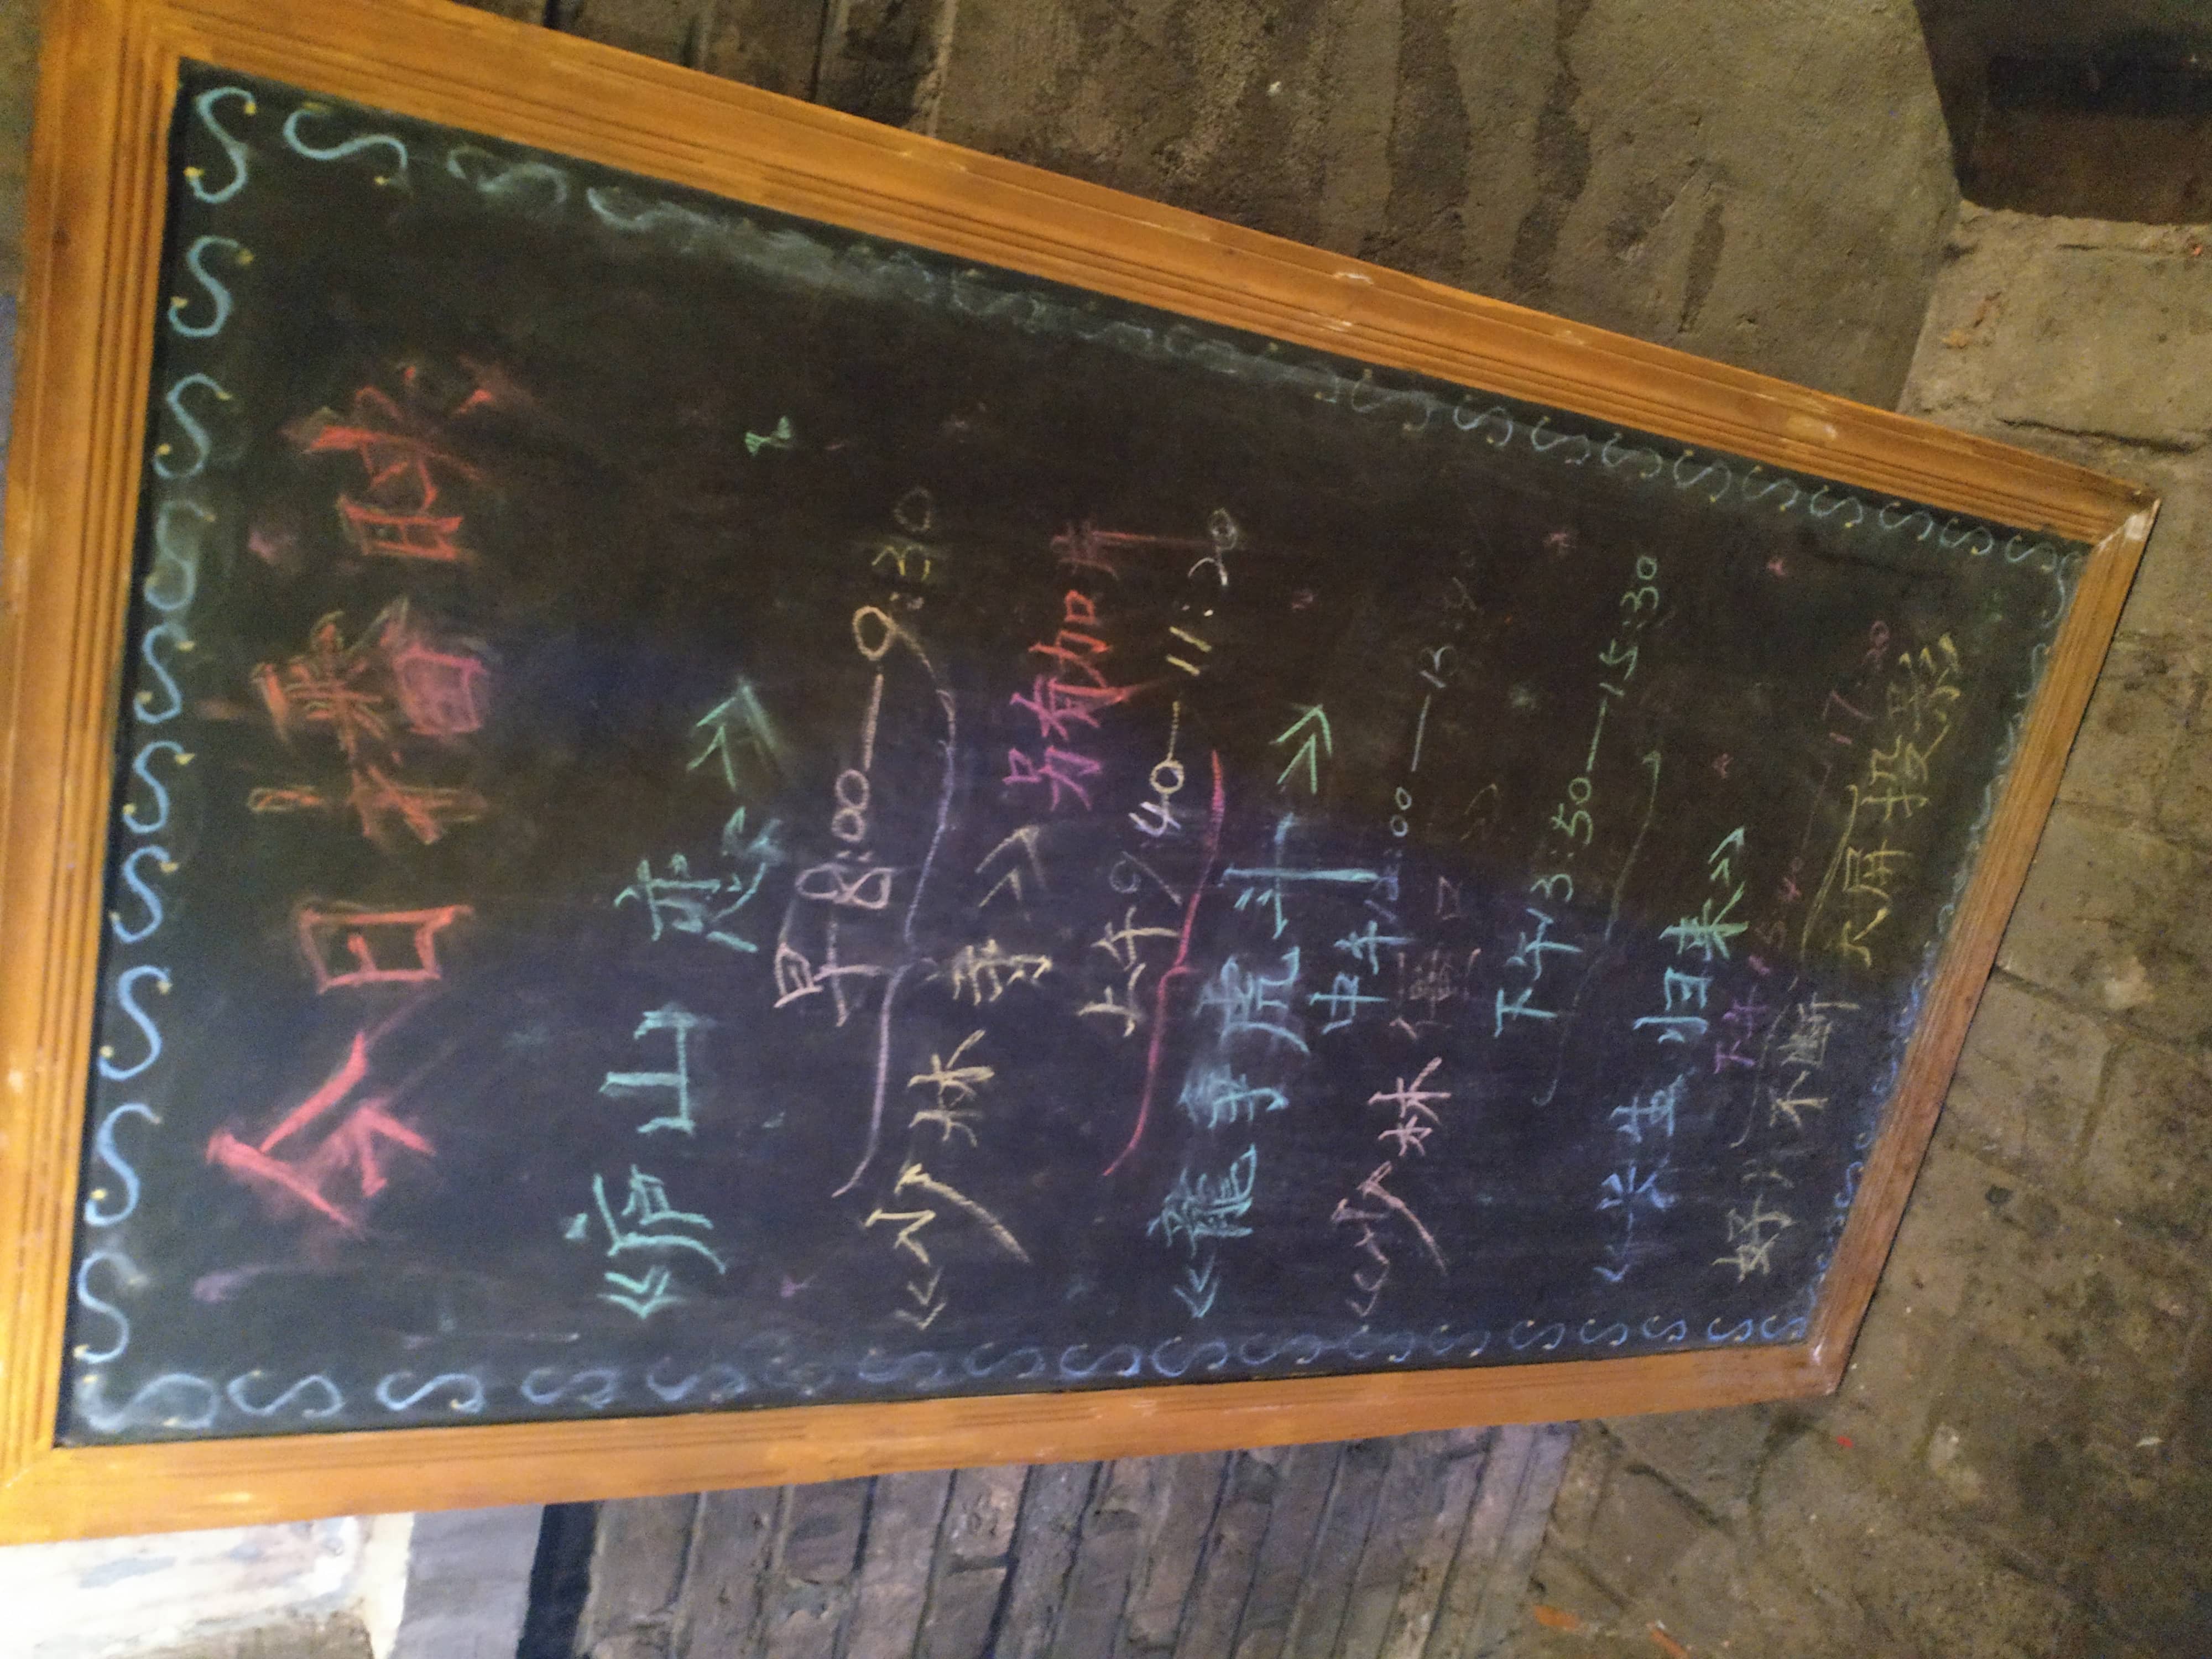 今日播映
《庐山恋》
早8:00—9:30
《少林寺》 另有加片
上午9:40—11:20
《龍争虎斗》
中午12:00—13:40
《少林
下午13:50—15:30
归来》
下午15:40—17:20
好片不断
大屏投影